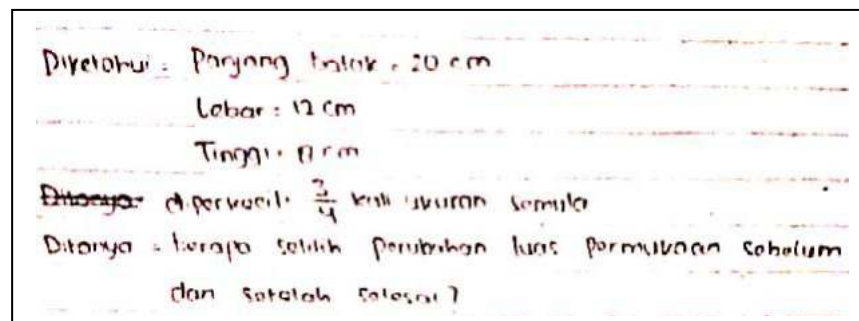 Diketahui : Panjang balok = 20 cm
Lebar : 12 cm
Tinggi : cm
Ditanya diperkecil 3/4 kali ukuran semula
Ditanya = berapa selisih perubahan luas permukaan sebelum
dan setelah selesai ?